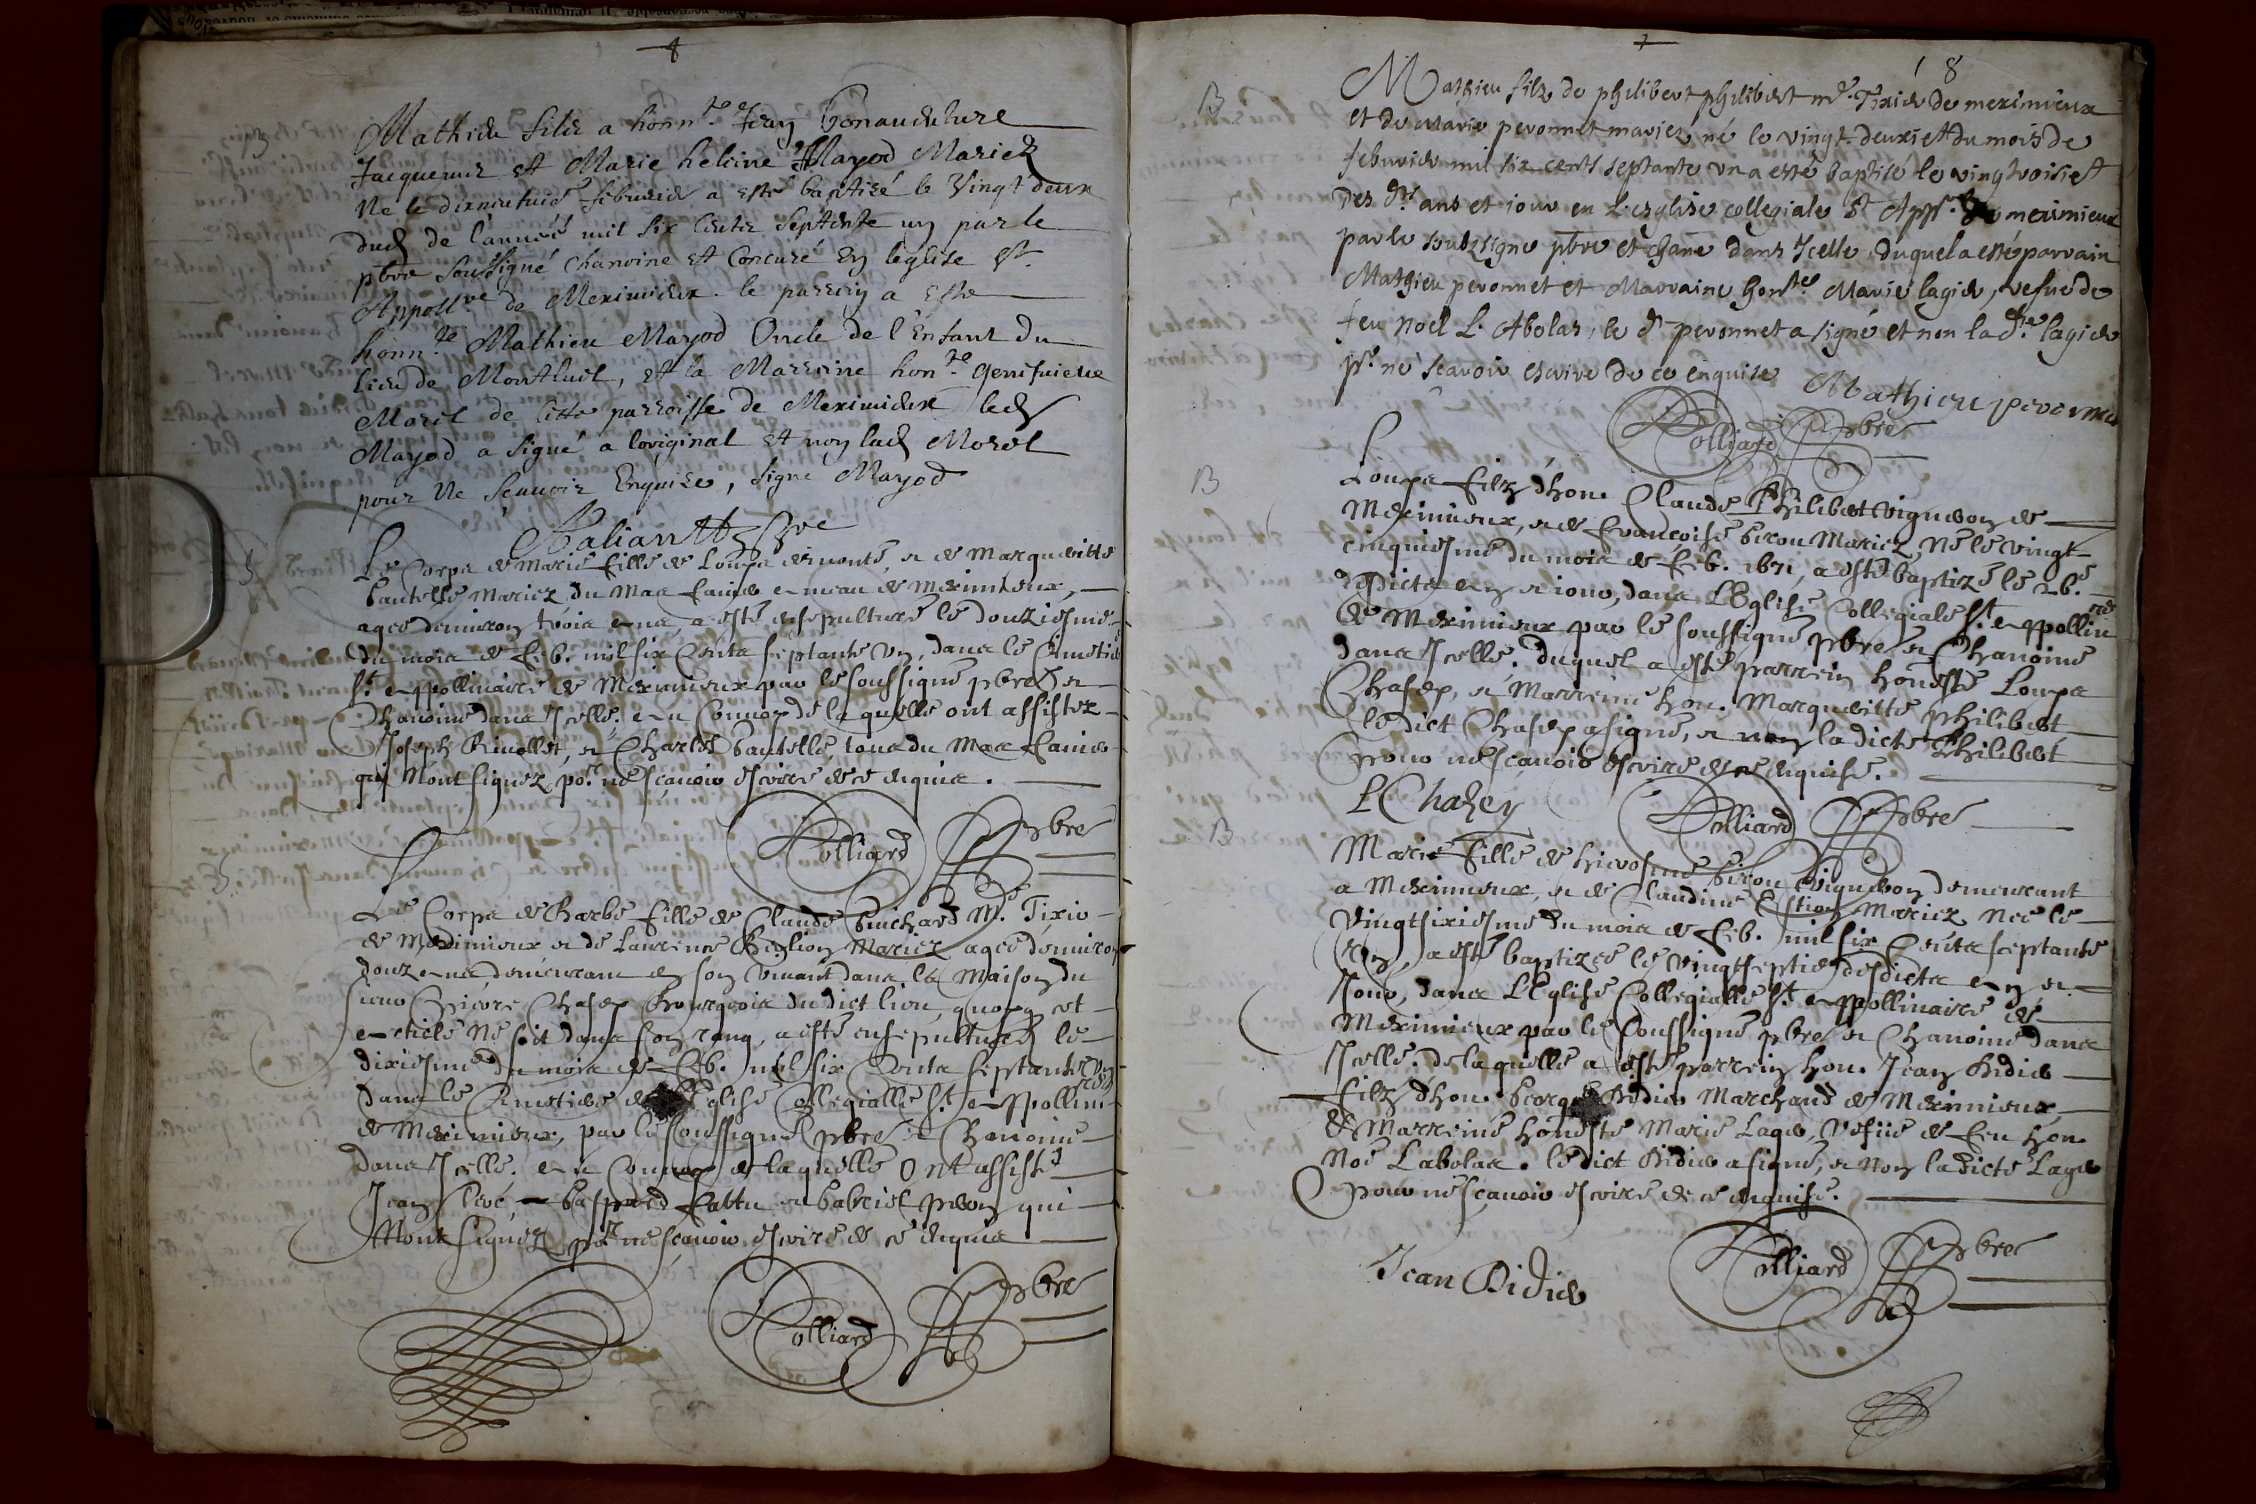 B
Mathieu filz a honn.te Jean Bonauenture
Jacquemir et Marie heleine Mayod Mariez
Ne le dixneufuie febvrier a esté baptizé le Vingt deux
dud de l'année mil six Centz Septante un par le
pbre Soussigné Chanoine et Concuré En leglise St.
Appoll.re de Meximieux. le parrein a este
honn.te Mathieu Mayod Oncle de l'Enfant du
lieu de Montluel, et la Marreine hon.te Genefuieue
Morel de Cette parroisse de Meximieux led
Mayod a Signé a loriginal et non lad Morel
pour Ne Sçauoir Enquise, Signé Mayod
S
Le Corps de Marie fille de Loups et de Margueritte
bautelle Mariez du Mas de Meximieux,
agee demiron trois ans a esté ensepulturé le douziesme
du mois de feb. mil six Cents septante Un, dans le Cimetie
St. Appollinaire de Meximieux par le soussigné pbre et
Chanoine dans Jcelle. au Conuoy de laquelle ont assistez
Joseph Riuollet, et Charles bautelle, tous du Mas
qui Nont signez po.r ne sçauoir escrire de ce enquis.
Rolliard pbre
S
Le Corps de Barbe fille de Claude buichard M.e Tixie
de Meximieux et de Laurence Mariez agee demiron
douz ans demeurant en son viuant dans la Maison du
sieur Chasey Bourgeois dudict lieu, quoyq cet
article Ne soit dans son rang, a esté ensepulturee le
dixiesme du mois de feb. mil six Cents septante Un
dans le Cimetiere de Leglise Collegialle St. Appollinaire
de Meximieux, par le soussigné pbre et Chanoine
dans Jcelle. au Conuoy de laquelle ont assisté
Jean et Gabriel qui
Nont signez po.r ne sçauoir escrire de ce enquis
Rolliard pbre
8
B
Mathieu filz de philibert philibert m.e Tixier de meximieux
et de marie peronnet mariez né le vingt deuxie du mois de
feburier mil six cents septante un a esté baptisé le vingtroisie
des d.s ans et iour en L'esglise collegiale St App.re de meximieux
par le soubzsigné pbre et chane dans Jcelle, duquel a esté parrain
Mathieu peronnet et Marraine hon.te Marie lagier, vefue de
feu noel L'Abolas, le d peronnet a signé et non la d.te lagier
p.r ne scavoir escrire de ce enquise
Mathieu peronnet
Rolliard pbre
B
Loups filz d'hon. Claude Philibert vigneron de
Meximieux, et de francoise biron Mariez Né le vingt
cinquiesme du mois de feb. 1671, a esté baptizé le 26.e
desdicts an et iour, dans LEglise Collegiale St. Appollin.re
de Meximieux par le soussigné pbre et Chanoine
dans Jcelle. duquel a esté parrein honeste Loups
Chasey, et Marreine hon. Marguerite philibert
ledict Chasey a signé, et non ladicte Philibert
pour ne sçauoir escrire de ce enquise.
L Chazey
Rolliard pbre
B
Marie fille de hierosme biron Vigneron demeurant
a Meximieux, et de Claudine Mariez Nee le
vingtsixiesme du mois de feb. mil six Cents septante
Un, a esté baptizee le vingtseptie desdicts an et
Jour, dans LEglise Collegialle St. Appollinaire de
Meximieux par le soussigné pbre et Chanoine dans
Jcelle. de laquelle a esté parrein hon. Jean Didier
filz d'hon. George Didier Marchand de Meximieux
& Marreine honeste Marie Lager, Vefue de feu hon
Noe Labolas. ledict Didier a signé, et Non ladicte Lager
pour ne sçauoir escrire de ce enquise.
Jean Didier
Rolliard pbre